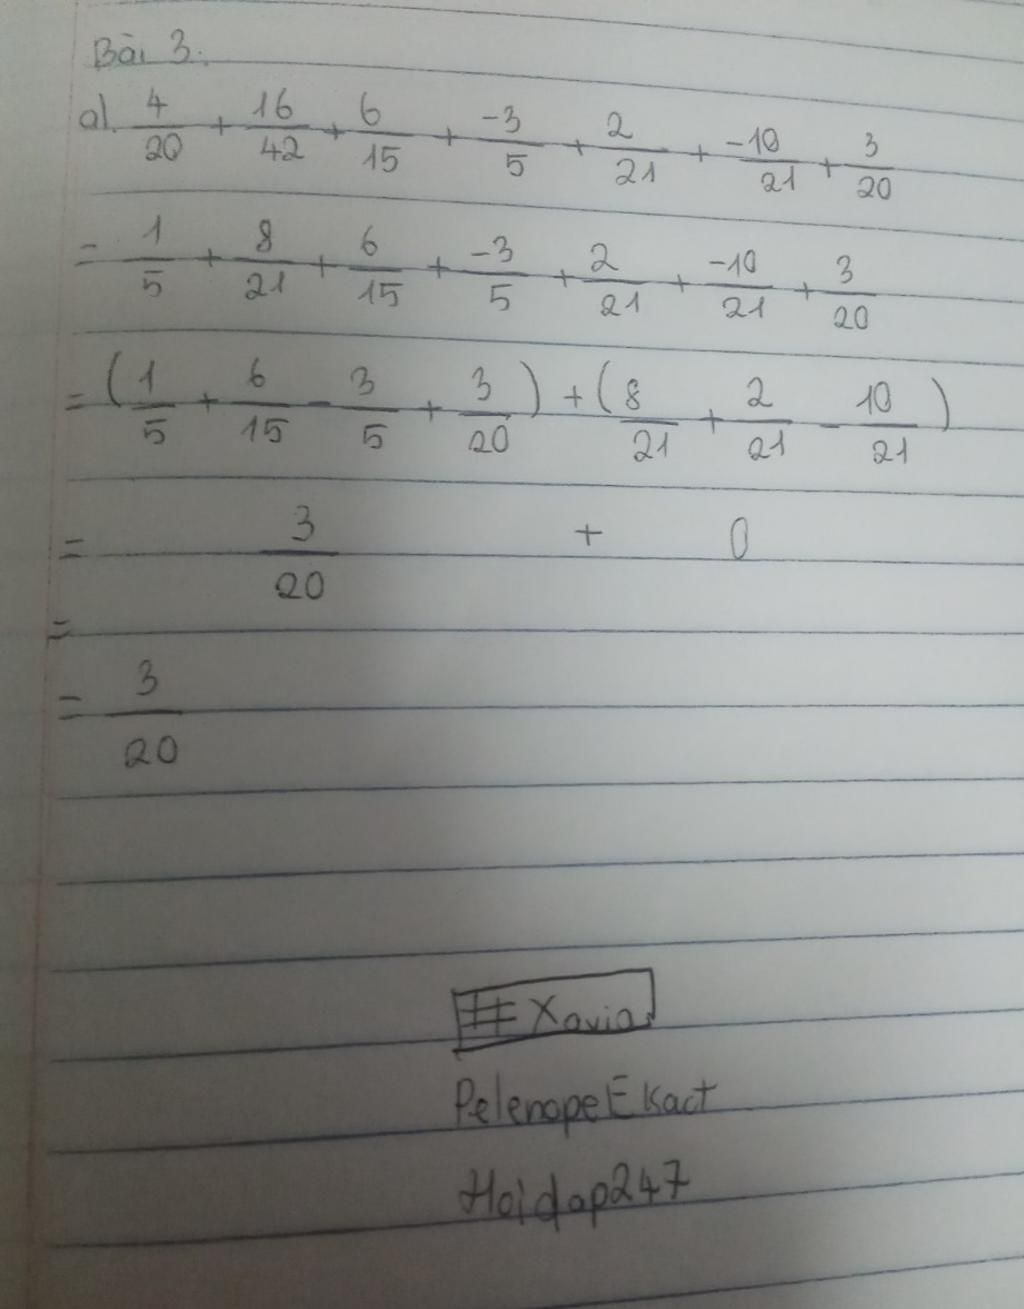 Bài 3.
a). 4/20 + 16/42 + 6/15 + -3/5 + 2/21 + -10/21 + 3/20
= 1/5 + 8/21 + 6/15 + -3/5 + 2/21 + -10/21 + 3/20
= (1/5 + 6/15 - 3/5 + 3/20) + (8/21 + 2/21 - 10/21)
= 3/20 + 0
=
= 3/20
# Xavia
PelenopeEkact
Hoidap247